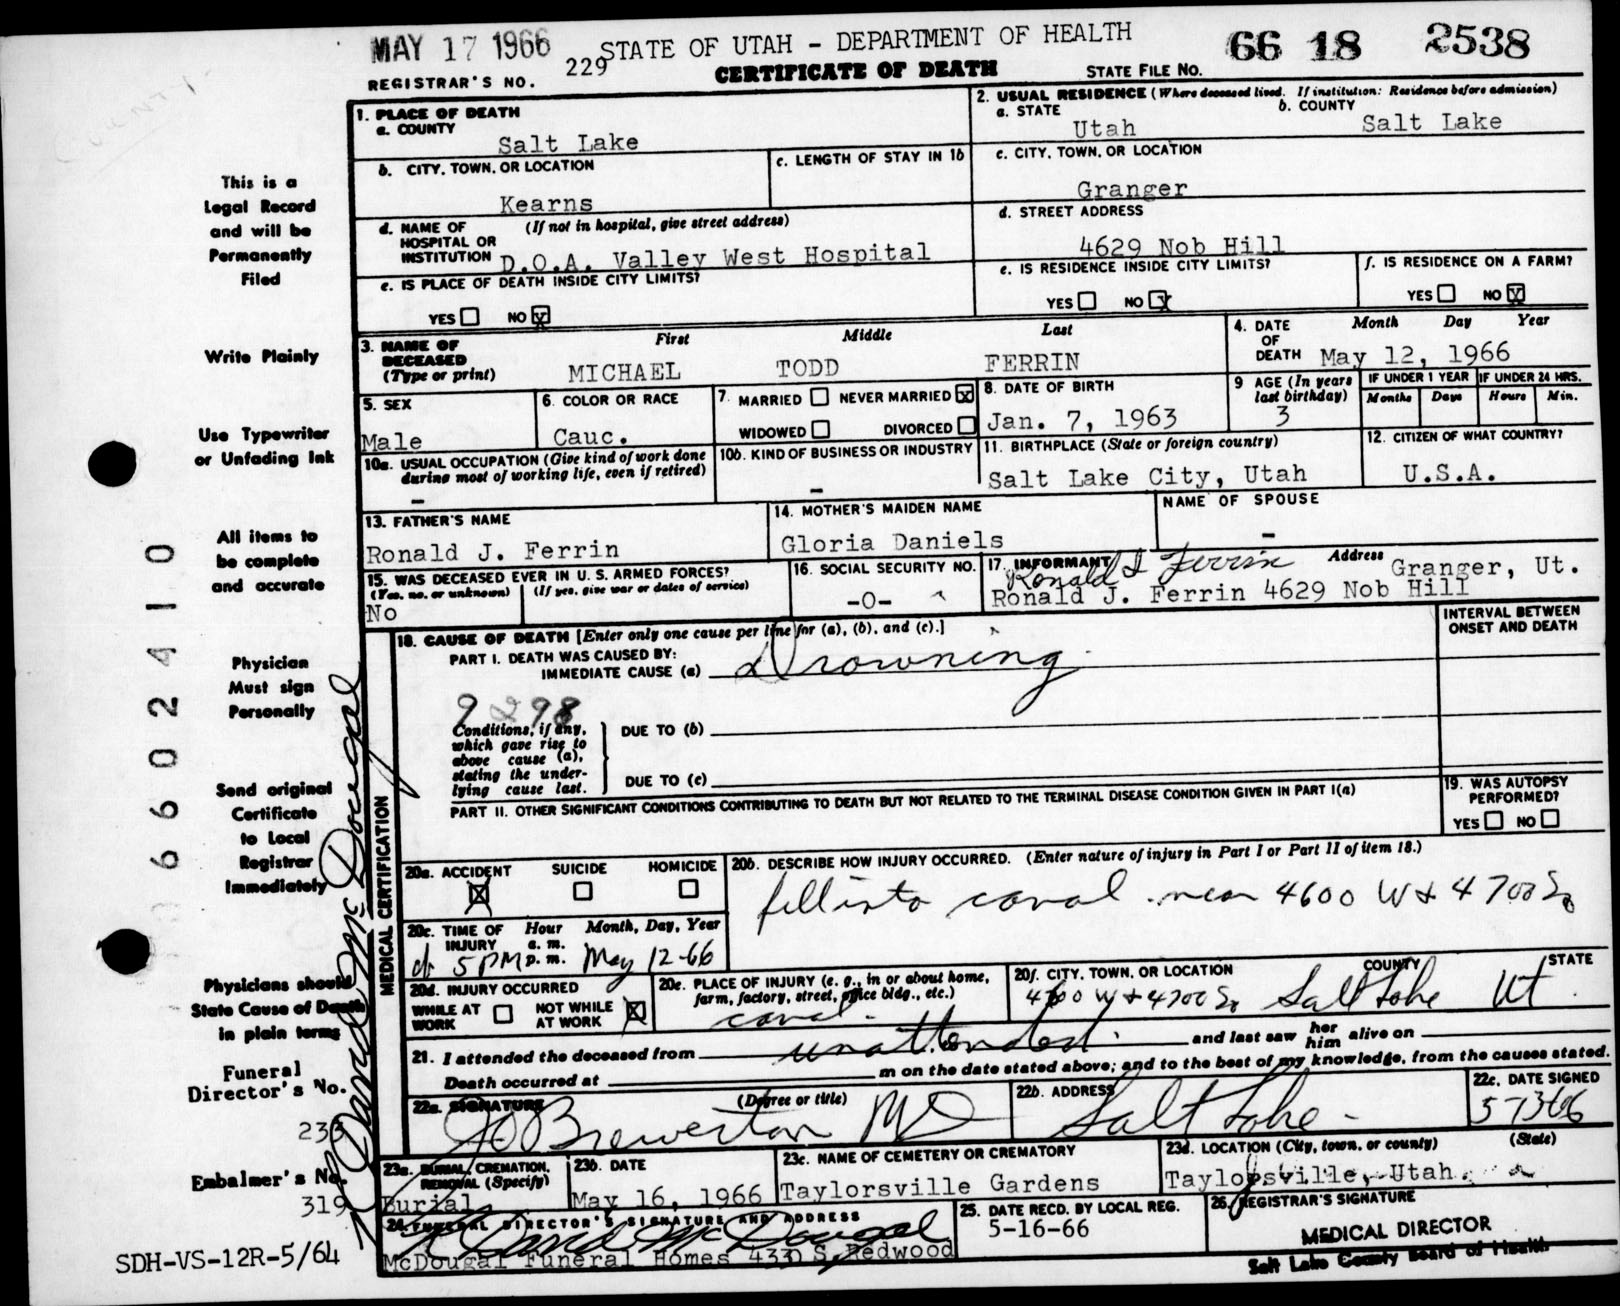 MAY 17 1966
STATE OF UTAH - DEPARTMENT OF HEALTH
66 18 2538
REGISTRAR'S NO. 229
CERTIFICATE OF DEATH
STATE FILE NO.
1. PLACE OF DEATH
a. COUNTY
Salt Lake
2. USUAL RESIDENCE (Where deceased lived. If institution: Residence before admission)
a. STATE
Utah
b. COUNTY
Salt Lake
b. CITY, TOWN, OR LOCATION
Kearns
c. LENGTH OF STAY IN 1b
c. CITY, TOWN, OR LOCATION
Granger
d. NAME OF HOSPITAL OR INSTITUTION
(If not in hospital, give street address)
D.O.A. Valley West Hospital
d. STREET ADDRESS
4629 Nob Hill
e. IS PLACE OF DEATH INSIDE CITY LIMITS?
YES NO X
e. IS RESIDENCE INSIDE CITY LIMITS?
YES NO X
f. IS RESIDENCE ON A FARM?
YES NO X
3. NAME OF DECEASED (Type or print)
First Middle Last
MICHAEL TODD FERRIN
4. DATE OF DEATH
Month Day Year
May 12, 1966
5. SEX
Male
6. COLOR OR RACE
Cauc.
7. MARRIED NEVER MARRIED X
WIDOWED DIVORCED
8. DATE OF BIRTH
Jan. 7, 1963
9 AGE (In years last birthday)
3
IF UNDER 1 YEAR
Months Days
IF UNDER 24 HRS.
Hours Min.
10a. USUAL OCCUPATION (Give kind of work done during most of working life, even if retired)
-
10b. KIND OF BUSINESS OR INDUSTRY
-
11. BIRTHPLACE (State or foreign country)
Salt Lake City, Utah
12. CITIZEN OF WHAT COUNTRY?
U.S.A.
13. FATHER'S NAME
Ronald J. Ferrin
14. MOTHER'S MAIDEN NAME
Gloria Daniels
NAME OF SPOUSE
-
15. WAS DECEASED EVER IN U. S. ARMED FORCES?
(Yes, no, or unknown) (If yes, give war or dates of service)
No
16. SOCIAL SECURITY NO.
-0-
17. INFORMANT
Ronald J Ferrin
Address
Granger, Ut.
Ronald J. Ferrin 4629 Nob Hill
18. CAUSE OF DEATH [Enter only one cause per line for (a), (b), and (c).]
INTERVAL BETWEEN ONSET AND DEATH
PART I. DEATH WAS CAUSED BY:
IMMEDIATE CAUSE (a) Drowning
9298
Conditions, if any, which gave rise to above cause (a), stating the underlying cause last.
DUE TO (b)
DUE TO (c)
PART II. OTHER SIGNIFICANT CONDITIONS CONTRIBUTING TO DEATH BUT NOT RELATED TO THE TERMINAL DISEASE CONDITION GIVEN IN PART I(a)
19. WAS AUTOPSY PERFORMED?
YES NO
MEDICAL CERTIFICATION
20a. ACCIDENT SUICIDE HOMICIDE
X
20b. DESCRIBE HOW INJURY OCCURRED. (Enter nature of injury in Part I or Part II of item 18.)
fell into canal near 4600 W & 4700 So
20c. TIME OF INJURY Hour a. m. p. m. Month, Day, Year
5 PM May 12-66
20d. INJURY OCCURRED
WHILE AT WORK NOT WHILE AT WORK X
20e. PLACE OF INJURY (e. g., in or about home, farm, factory, street, office bldg., etc.)
canal
20f. CITY, TOWN, OR LOCATION COUNTY STATE
4600 W & 4700 So Salt Lake Ut.
21. I attended the deceased from unattended and last saw her him alive on
Death occurred at m on the date stated above; and to the best of my knowledge, from the causes stated.
22a. SIGNATURE (Degree or title)
Brewerton MD
22b. ADDRESS
Salt Lake
22c. DATE SIGNED
51366
23a. BURIAL, CREMATION, REMOVAL (Specify)
Burial
23b. DATE
May 16, 1966
23c. NAME OF CEMETERY OR CREMATORY
Taylorsville Gardens
23d. LOCATION (City, town, or county) (State)
Taylorsville, Utah.
24. FUNERAL DIRECTOR'S SIGNATURE AND ADDRESS
R David McDougal
McDougal Funeral Homes 4330 S. Redwood
25. DATE RECD. BY LOCAL REG.
5-16-66
26. REGISTRAR'S SIGNATURE
MEDICAL DIRECTOR
Salt Lake County Board of Health
This is a
Legal Record
and will be
Permanently
Filed
Write Plainly
Use Typewriter
or Unfading Ink
All items to
be complete
and accurate
Physician
Must sign
Personally
Send original
Certificate
to Local
Registrar
Immediately
Physicians should
State Cause of Death
in plain terms
Funeral
Director's No.
233
Embalmer's No.
319
SDH-VS-12R-5/64
R David McDougal
66 02410